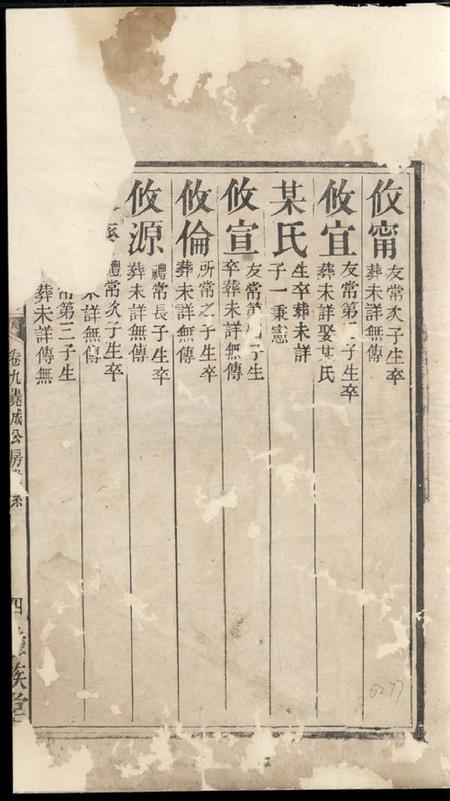 攸甯
友常次子生卒
葬未詳無傳
攸宜
友常第 子生卒
葬未詳娶某氏
某氏
生卒葬未詳
子一秉憲
攸宣
友常第 子生
卒葬未詳無傳
攸倫
所常之子生卒
葬未詳無傳
攸源
禮常長子生卒
葬未詳無傳
禮常次子生卒
未詳無傳
常第三子生
葬未詳傳無
卷九 成公房 系
四
族堂
6277